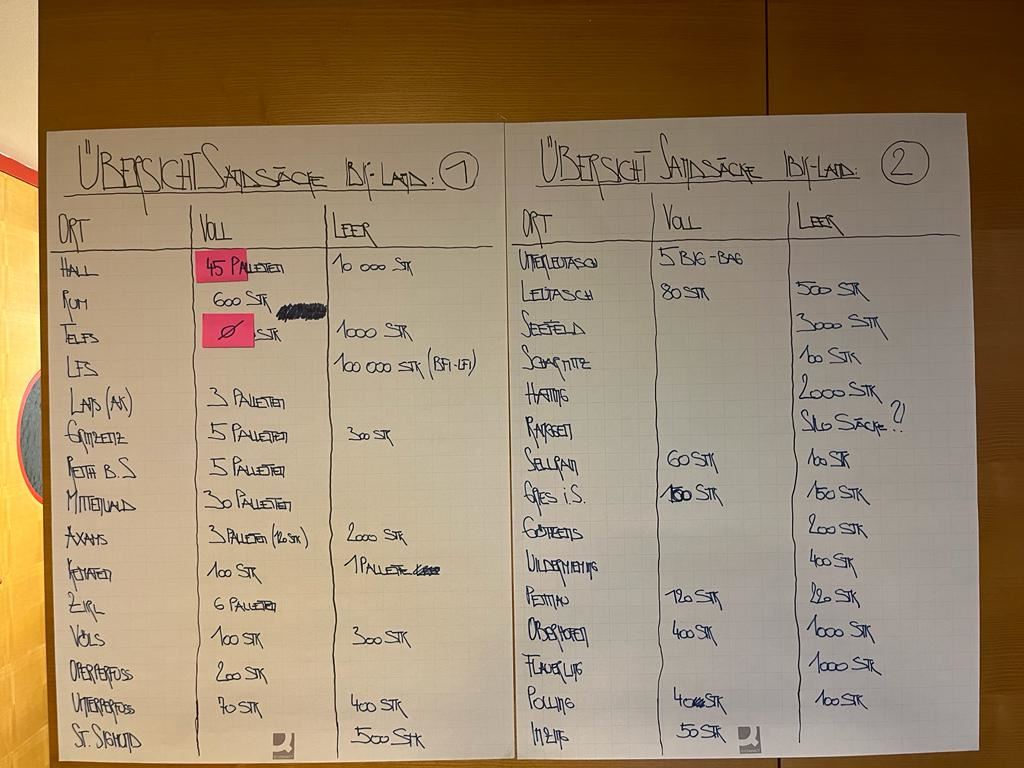 ÜBERSICHT SANDSÄCKE IBK-LAND: 1
ORT VOLL LEER
HALL 45 PALLETEN 10 000 STK
RUM 600 STK
TELFS Ø STK 1000 STK
LFS 100 000 STK (BFI-LFI)
LANS (AK) 3 PALLETEN
GRINZENZ 5 PALLETEN 300 STK
REITH B.S 5 PALLETEN
MITTENWALD 30 PALLETEN
AXAMS 3 PALLETEN (120 STK) 2000 STK
KEMATEN 100 STK 1 PALLETE
ZIRL 6 PALLETEN
VÖLS 100 STK 300 STK
OPERPERFUSS 200 STK
UNTERPERFUSS 70 STK 400 STK
ST. SIGMUND 500 STK
ÜBERSICHT SANDSÄCKE IBK-LAND: 2
ORT VOLL LEER
UNTERLEUTASCH 5 BIG-BAG
LEUTASCH 80 STK 500 STK
SEEFELD 3000 STK
SCHARNITZ 100 STK
HATTING 2000 STK
RANGGEN SILO SÄCKE?!
SELLRAIN 60 STK 100 STK
GRIES i.S. 150 STK 150 STK
GÖTZENS 200 STK
WILDERMIEMING 400 STK
PETTNAU 120 STK 220 STK
OBERHOFEN 400 STK 1000 STK
FLAURLING 1000 STK
POLLING 40 STK 100 STK
INZING 50 STK